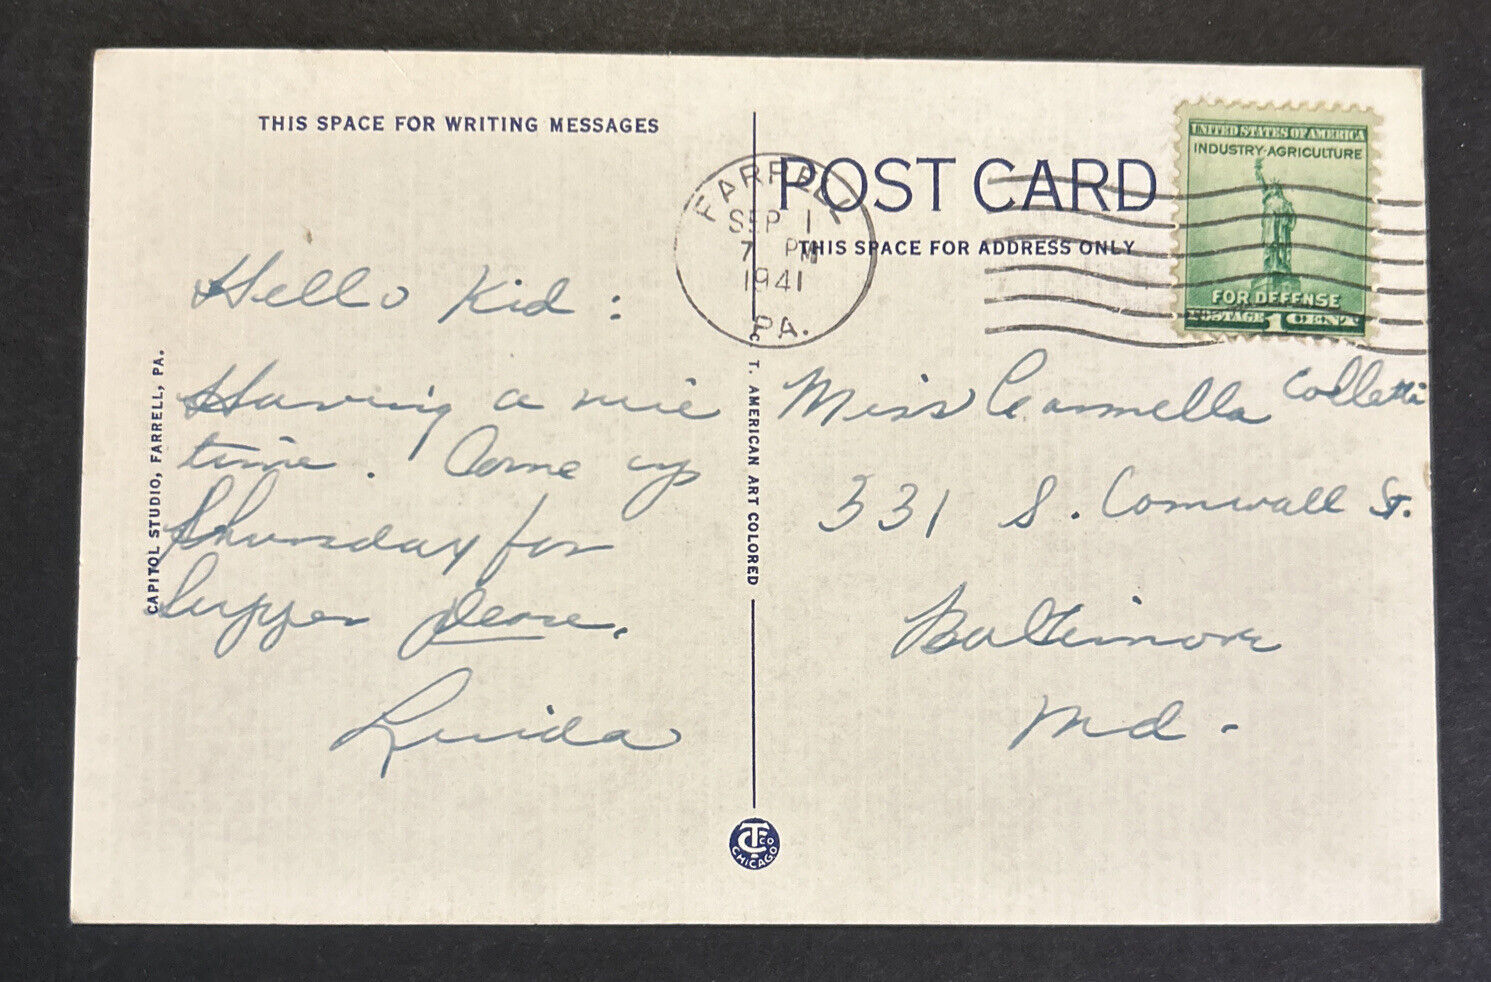 THIS SPACE FOR WRITING MESSAGES
Hello Kid:
Having a nice
time. Come up
Thursday for
Supper please.
CAPITOL STUDIO, FARRELL, PA.
C. T. AMERICAN ART COLORED
CTCo
CHICAGO
FARRELL
SEP 1
7 PM
1941
PA.
POST CARD
THIS SPACE FOR ADDRESS ONLY
UNITED STATES OF AMERICA
INDUSTRY·AGRICULTURE
FOR DEFENSE
POSTAGE 1 CENT
Miss Carmella Colletti
331 S. Cornwall St.
Baltimore
Md.